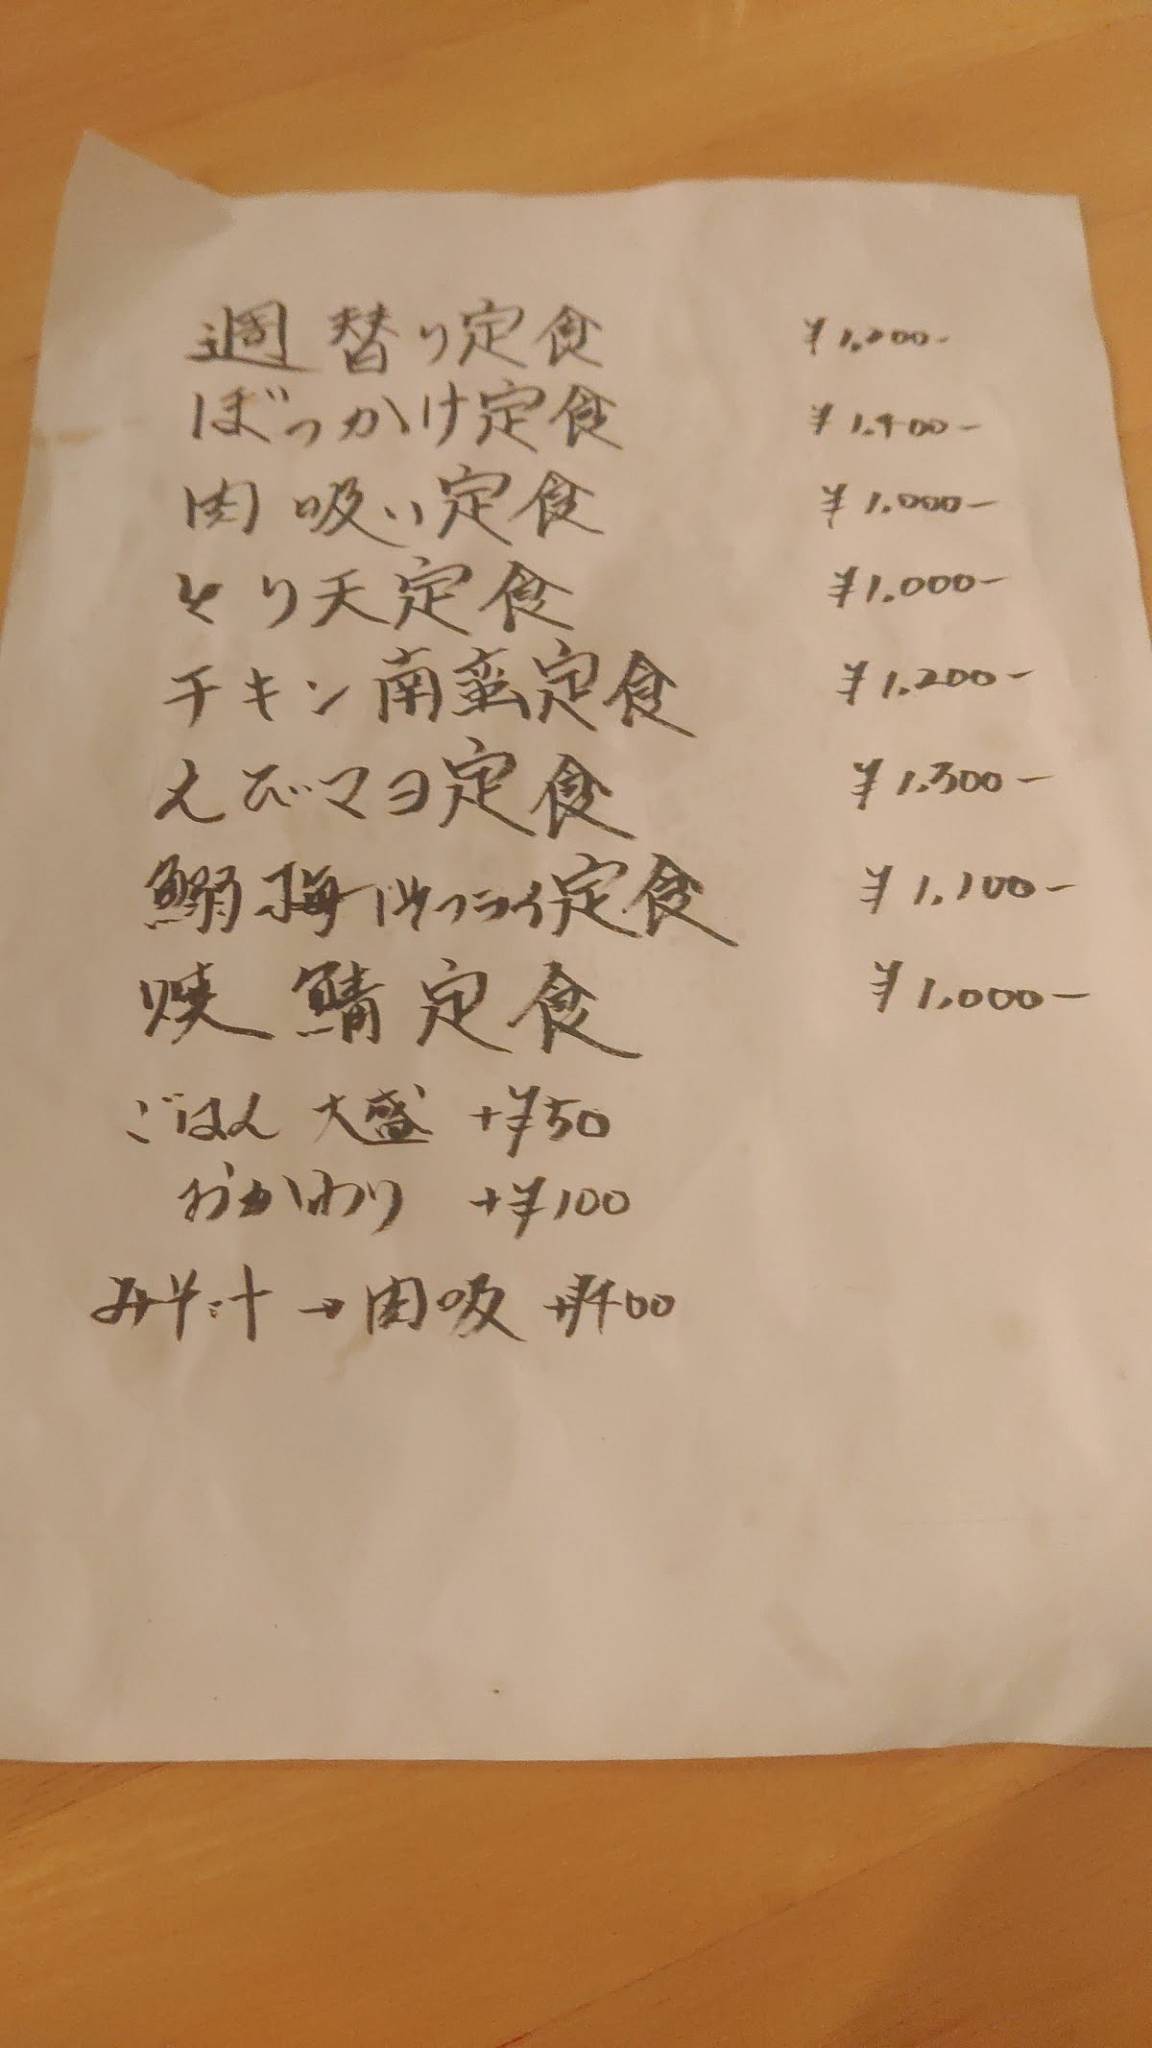 週替り定食 ¥1.200-
ぼっかけ定食 ¥1.400-
肉吸い定食 ¥1.000-
とり天定食 ¥1.000-
チキン南蛮定食 ¥1.200-
えびマヨ定食 ¥1.300-
鰯梅しそフライ定食 ¥1.100-
焼鯖定食 ¥1.000-
ごはん 大盛 +¥50
おかわり +¥100
みそ汁→肉吸 +¥400